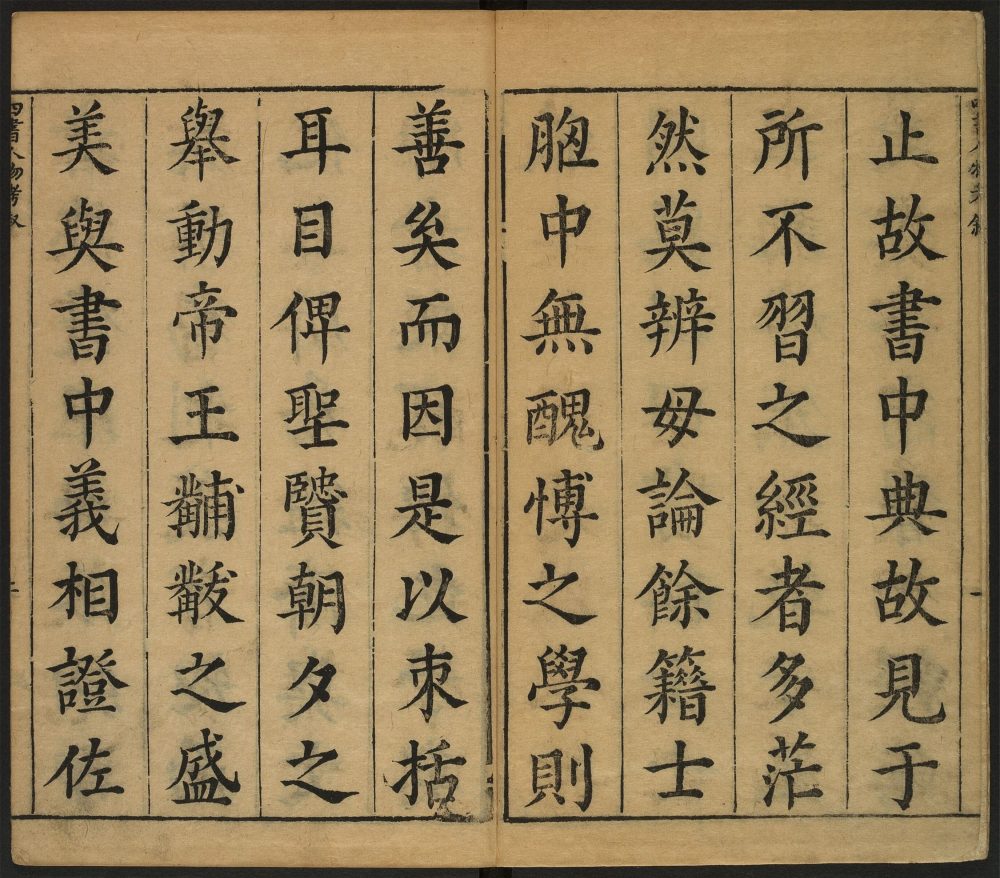 止故書中典故見于
所不習之經者多茫
然莫辨毋論餘籍士
胞中無醜愽之學則
善矣而因是以束括
耳目俾聖賢朝夕之
舉動帝王黼黻之盛
美與書中義相證佐
四書人物考叙